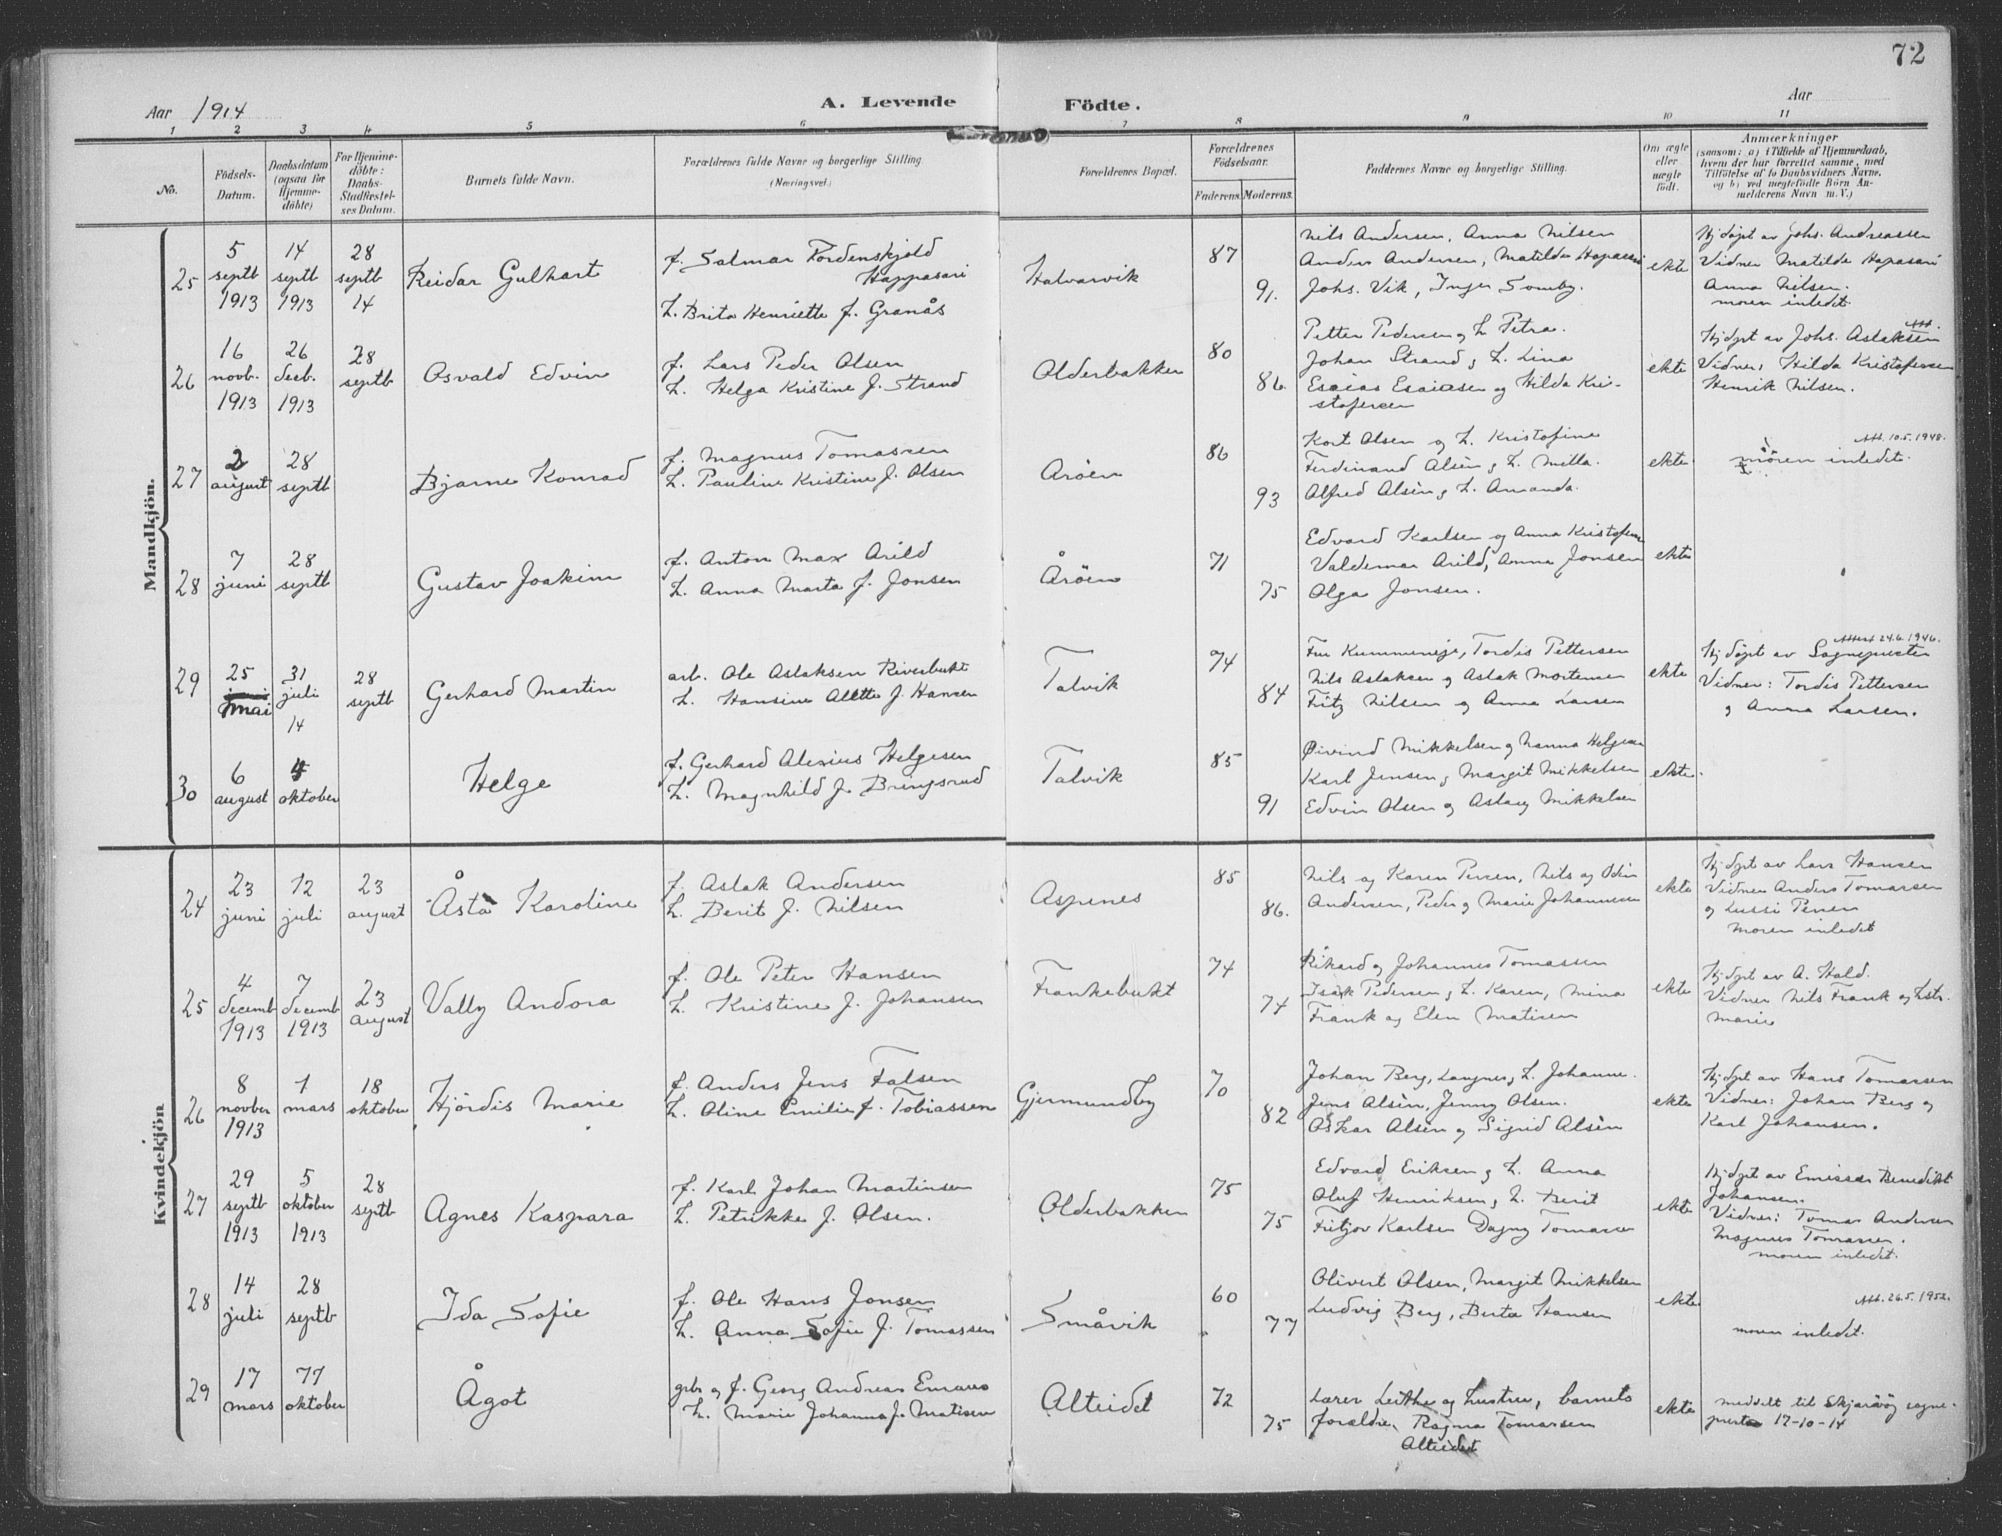 72
Aar 1914
A. Levende Födte.
Aar
1 2 3 4 5 6 7 8 9 10 11
No.
Födsels-Datum.
Daabsdatum (ogsaa for Hjemme-döbte)
For Hjemme-döbte: Daabs-Stadfæstel-ses Datum.
Barnets fulde Navn.
Forældrenes fulde Navne og borgerlige Stilling
(Næringsvei.)
Forældrenes Bopæl.
Forældrenes Födselsaar.
Faderens. Moderens.
Faddernes Navne og borgerlige Stilling.
Om ægte eller uægte født.
Anmærkninger
(saasom: a) i Tilfælde af Hjemmedaab,
hvem der har forrettet samme, med
Tilföielse af to Daabsvidners Navne,
og b) ved uægtefödte Börn An-
melderens Navn m. V.)
Mandkjön.
25
5 septb 1913
14 septb 1913
28 septb 14
Reidar Gulhart
f. Salmar Tordenskjold
Happasari
h. Brita Henriette f. Granås
Halvarvik
87
91.
Nils Andersen, Anna Nilsen
Anders Andersen, Matilde Hapasari
Johs. Vik, Inger Somby.
ekte
Hjdöpt av Johs. Andreassen
Vidner Matilde Hapasari
Anna Nilsen.
moren inledet.
26
16 novb. 1913
26 decb. 1913
28 septb
Osvald Edvin
f. Lars Peder Olsen
h. Helga Kristine f. Strand
Olderbakken
80
86.
Petter Pedersen og h. Petra.
Johan Strand og h. Lina
Esaias Esaiasen og Hilda Kri-
stofersen
ekte
Att.
Hjdöpt av Johs. Aslaksen
Vidner: Hilda Kristofersen
Henrik Nilsen.
27
2 august
28 septb
Bjarne Konrad
f. Magnus Tomassen
h. Pauline Kristine f. Olsen
Aröen
86
93
Kort Olsen og h. Kristofine
Ferdinand Alsén og h. Milla.
Alfred Alsén og h. Amanda.
ekte
Att. 10.5.1948.
moren inledet.
28
7 juni
28 septb
Gustav Joakim
f. Anton Max Arild
h. Anna Marta f. Jonsen
Åröen
71
75
Edvard Karlsen og Anna Kristofersen
Valdemar Arild, Anna Jonsen
Olga Jonsen.
ekte
29
25 mai
31 juli 14
28 septb
Gerhard Martin
arb. Ole Aslaksen Riverbukt
h. Hansine Alette f. Hansen
Talvik
74
84
Fru Kummeneje, Tordis Pettersen
Nils Aslaksen og Aslak Mortensen
Fritz Nilsen og Anna Larsen
ekte
Attest 24.6.1946.
Hjdöpt av Sogneprestem
Vidner: Tordis Pettersen
og Anna Larsen.
30
6 august
4 oktober
Helge
f. Gerhard Alexius Helgesen
h. Magnhild f. Bringsrud
Talvik
85
91
Øivind Mikkelsen og Nanna Helgesen
Karl Jensen og Margit Mikkelsen
Edvin Olsen og Aslaug Mikkelsen
ekte.
Kvindekjön
24
23 juni
12 juli
23 august
Åsta Karoline
f. Aslak Andersen
h. Berit f. Nilsen
Aspenes
85
86.
Nils og Karen Persen, Nils og Odin
Andersen, Peder og Marie Johannessen
ekte
Hjdöpt av Lars Hansen
Vidner Anders Tomassen
og Lussi Persen
moren inledet
25
4 decemb 1913
7 decemb 1913
23 august
Vally Andora
f. Ole Peter Hansen
h. Kristine f. Johansen
Frankebukt
74
74
Rikard og Johannes Tomassen
Isak Pedersen og h. Karen, Mina
Frank og Elen Matisen
ekte
Hjdöpt av A. Hald.
Vidner Nils Frank og hstr.
Marie
26
8 novber 1913
1 mars
18 oktober
Hjördis Marie
f. Anders Jens Falsen
h. Oline Emilie f. Tobiassen
Gjermundby
70
82
Johan Berg, Langnes, h. Johanne.
Jens Alsèn, Jenny Olsen.
Oskar Alsén og Sigrid Alsén
ekte
Hjdöpt av Hans Tomassen
Vidner: Johan Berg og
Karl Johansen.
27
29 septb 1913
5 oktober 1913
28 septb
Agnes Kaspara
f. Karl Johan Martinsen
h. Petrikke f. Olsen.
Olderbakken
75
75
Edvard Eriksen og h. Anna
Oluf Henriksen og h. Berit
Fritjov Karlsen Dagny Tomassen
ekte
Hjdöpt av Emissær Benedikt
Johansen.
Vidner: Tomas Andersen
Magnus Tomassen.
moren inledet.
28
14 juli
28 septb
Ida Sofie
f. Ole Hans Jonsen
h. Anna Sofie f. Tomassen
Småvik
60
77
Olivert Olsen, Margit Mikkelsen
Ludvig Berg, Berta Hansen
ekte
Att. 26.5.1952.
moren inledet.
29
17 mars
11 oktober
Ågot
grbr og f. Georg Andreas Emaus
h. Marie Johanna f. Matisen
Alteidet
72
75
Lærer Leithe og hustru, barnets
forældre, Ragna Tomassen
Alteidet
ekte
meddelt til Skjærvöy sogne-
prest 17-10-14